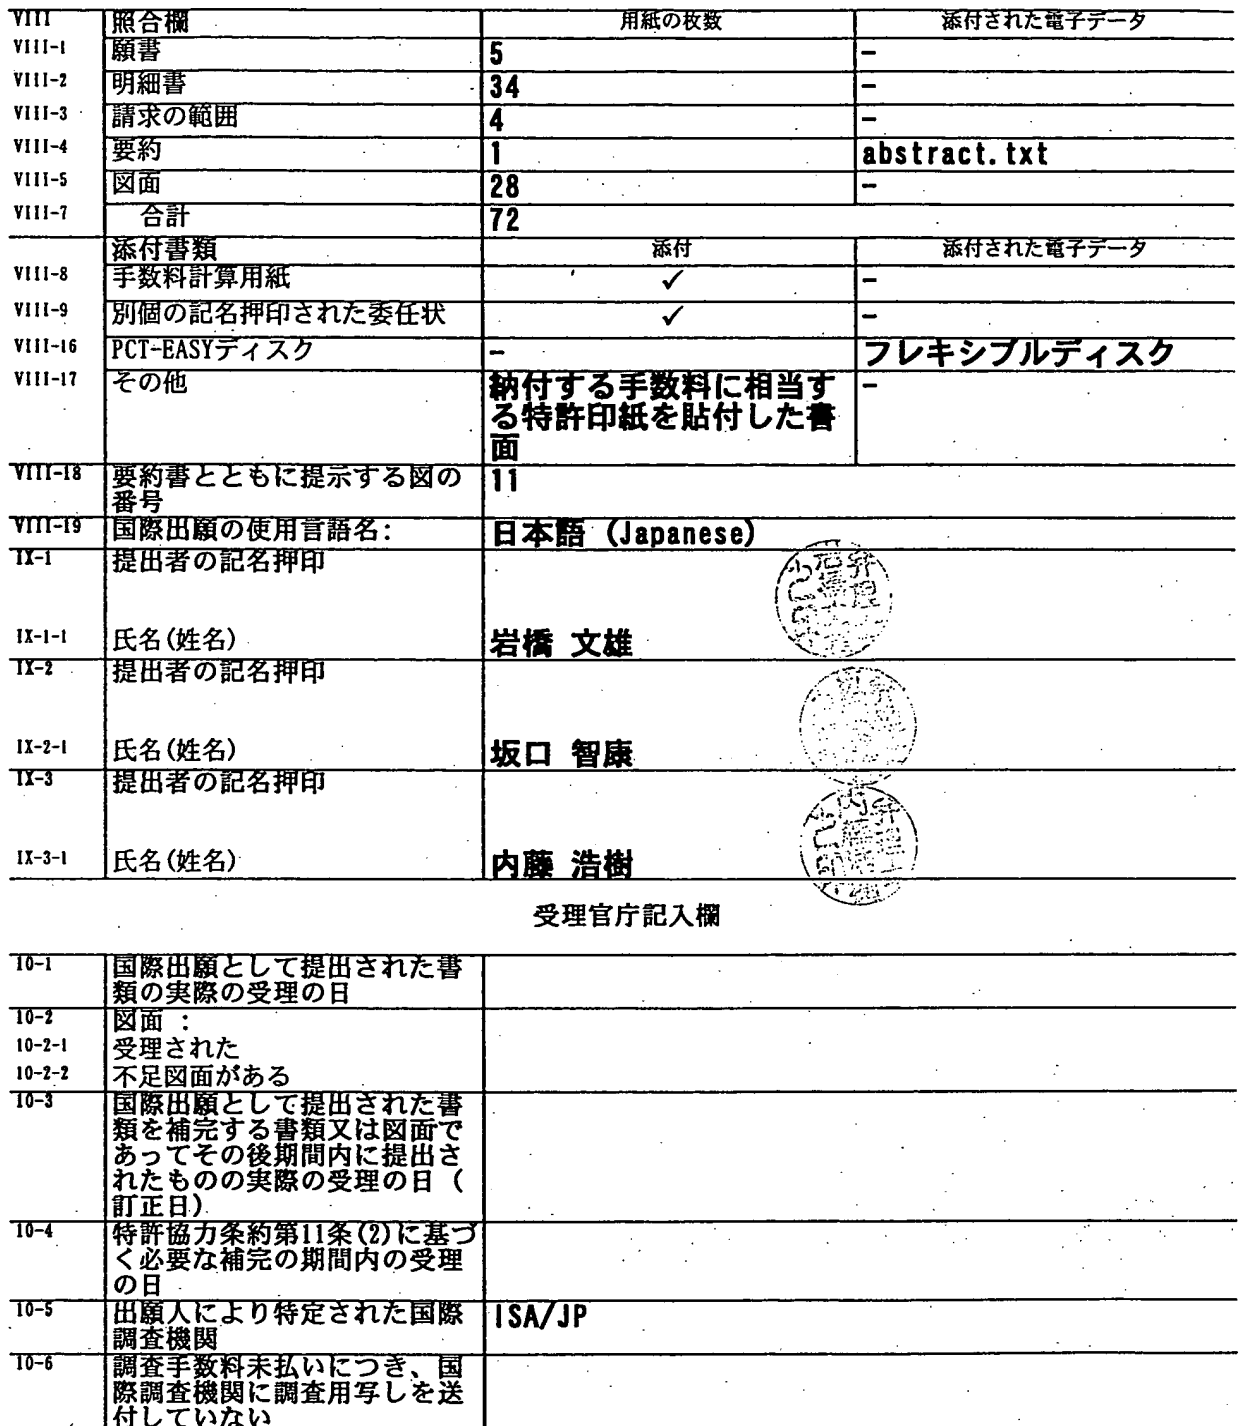 VIII 照合欄 用紙の枚数 添付された電子データ
VIII-1 願書 5 -
VIII-2 明細書 34 -
VIII-3 請求の範囲 4 -
VIII-4 要約 1 abstract.txt
VIII-5 図面 28 -
VIII-7 合計 72
添付書類 添付 添付された電子データ
VIII-8 手数料計算用紙 ✓ -
VIII-9 別個の記名押印された委任状 ✓ -
VIII-16 PCT-EASYディスク - フレキシブルディスク
VIII-17 その他 納付する手数料に相当す -
る特許印紙を貼付した書
面
VIII-18 要約書とともに提示する図の 11
番号
VIII-19 国際出願の使用言語名: 日本語 (Japanese)
IX-1 提出者の記名押印
IX-1-1 氏名(姓名) 岩橋 文雄
IX-2 提出者の記名押印
IX-2-1 氏名(姓名) 坂口 智康
IX-3 提出者の記名押印
IX-3-1 氏名(姓名) 内藤 浩樹
受理官庁記入欄
10-1 国際出願として提出された書
類の実際の受理の日
10-2 図面 :
10-2-1 受理された
10-2-2 不足図面がある
10-3 国際出願として提出された書
類を補完する書類又は図面で
あってその後期間内に提出さ
れたものの実際の受理の日 (
訂正日)
10-4 特許協力条約第11条(2)に基づ
く必要な補完の期間内の受理
の日
10-5 出願人により特定された国際 ISA/JP
調査機関
10-6 調査手数料未払いにつき、国
際調査機関に調査用写しを送
付していない